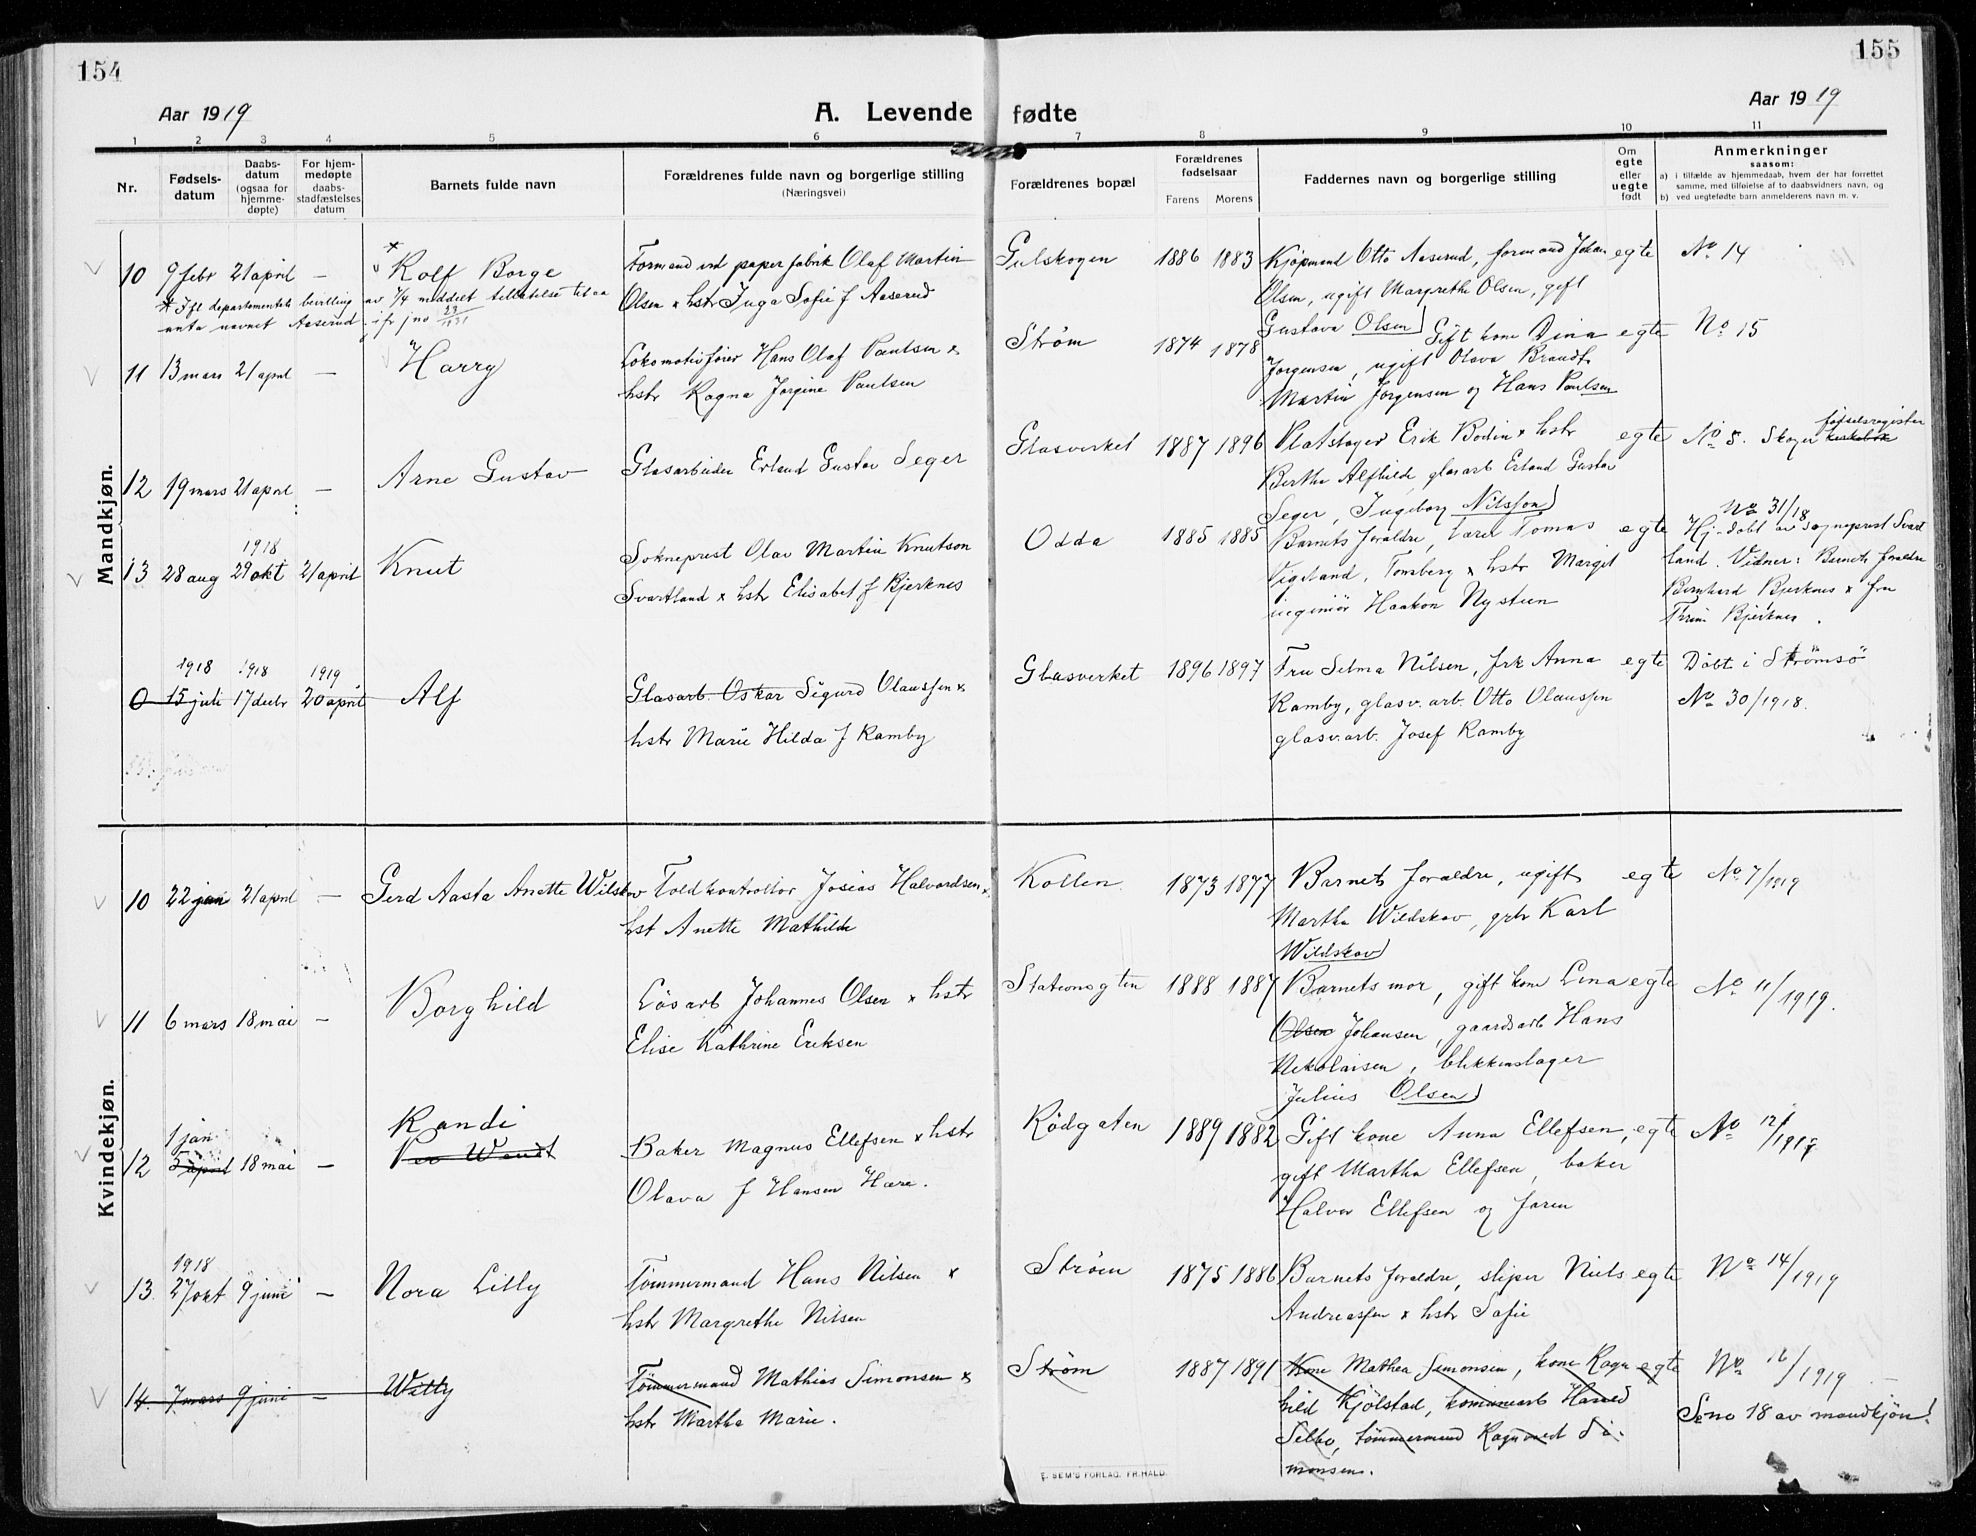 154
155
Aar 1919
A. Levende fødte
Aar 1919
1 2 3 4 5 6 7 8 9 10 11
Nr.
Fødsels-
datum
Daabs-
datum
(ogsaa for
hjemme-
døpte)
For hjem-
medøpte
daabs-
stadfæstelses
datum
Barnets fulde navn
Forældrenes fulde navn og borgerlige stilling
(Næringsvei)
Forældrenes bopæl
Forældrenes
fødselsaar
Farens Morens
Faddernes navn og borgerlige stilling
Om
egte
eller
uegte
født
Anmerkninger
saasom:
a) i tilfælde av hjemmedaab, hvem der har forrettet
samme, med tilføielse af to daabsvidners navn, og
b) ved uegtefødte barn anmelderens navn m. v.
Mandkjøn.
10 9 febr 21 april – * Rolf Borge
* Ifl departementets bevilling av 7/4 meddelt tillatelse til aa
anta navnet Aaserud. jfr jno 23/1931
Formand ved paperfabrik Olaf Martin
Olsen x hstr Inga Sofie f Aaserud
Gulskogen 1886 1883
Kjøpmand Otto Aaserud, formand Johan
Olsen, ugift Margrethe Olsen, gift
Gustava Olsen
egte No 14
11 13 mars 21 april – Harry
Lokomotivfører Hans Olaf Paulsen x
hstr Ragna Jørgine Paulsen
Strøm 1874 1878
Gift kone Dina
Jørgensen, ugift Olava Brandt
Martin Jørgensen og Hans Paulsen
egte No 15
12 19 mars 21 april – Arne Gustav
Glasarbeider Erland Gustav Seger
Glasverket 1887 1896
Platslager Erik Bodin x hstr
Bertha Alfhilde, glasarb Erland Gustav
Seger, Ingeborg Nilsson
egte No 5. Skoger kirkebok fødselsregister
13 28 aug 1918 29 okt 21 april Knut
Sokneprest Olav Martin Knutson
Svartland x hstr Elisabet f Bjerknes
Odda 1885 1885
Barnets foreldre, lærer Tomas
Vigeland, Tønsberg x hstr Margit
ingeniør Haakon Nysteen
egte No 31/18
Hj.døbt av sogneprest Svart
land. Vidner: Barnets foreldre
Bernhard Bjerknes x fru
Bjerknes.
0 1918 15 juli 1918 17 decbr 1919 20 april Alf
Glasarb. Oskar Sigurd Olaussen x
hstr Marie Hilda f Ramby
Glasverket 1896 1897
Fru Selma Nilsen, frk Anna
Ramby, glasv.arb. Otto Olaussen
glasv.arb. Josef Ramby
egte Døbt i Strømsø
No 30/1918.
Kvindekjøn.
10 22 jan 21 april – Gerd Aasta Anette Wilskov
Toldkontrollør Josias Halvordsen x
hst Anette Mathilde
Kollen 1873 1877
Barnets foreldre, ugift
Martha Wildskov, grb Karl
Wildskov
egte No 7/1919
11 6 mars 18 mai – Borghild
Løsarb Johannes Olsen x hstr
Elise Kathrine Eriksen
Stationsgten 1888 1887
Barnets mor, gift kone Lina
Olsen Johansen, gaardsarb Hans
Nikolaisen, blikkenslager
Julius Olsen
egte No 11/1919.
12 1 jan 5 april 18 mai – Randi
Per Wendt
Baker Magnus Ellefsen x hstr
Olava f Hansen Hære.
Rødgaten 1889 1882
Gift kone Anna Ellefsen,
gift Martha Ellefsen, baker
Halvor Ellefsen og faren
egte No 12/1919
13. 1918 27 okt 9 juni – Nora Lilly
Tømmermand Hans Nilsen x
hstr Margrethe Nilsen
Strøm 1875 1886
Barnets foreldre, sliper Niels
Andreassen x hstr Sofie
egte No 14/1919
14. 7 mars 9 juni – Willy
Tømmermand Mathias Simonsen x
hstr Martha Marie.
Strøm 1887 1891
Kone Mathea Simonsen, kone Ragn
hild Kjølstad, komunearb
Selbo, tømmermand Ragnvald Si-
monsen.
egte No 16/1919
Se no 18 av mandkjøn!
E. SEM'S FORLAG, FR.HALD.